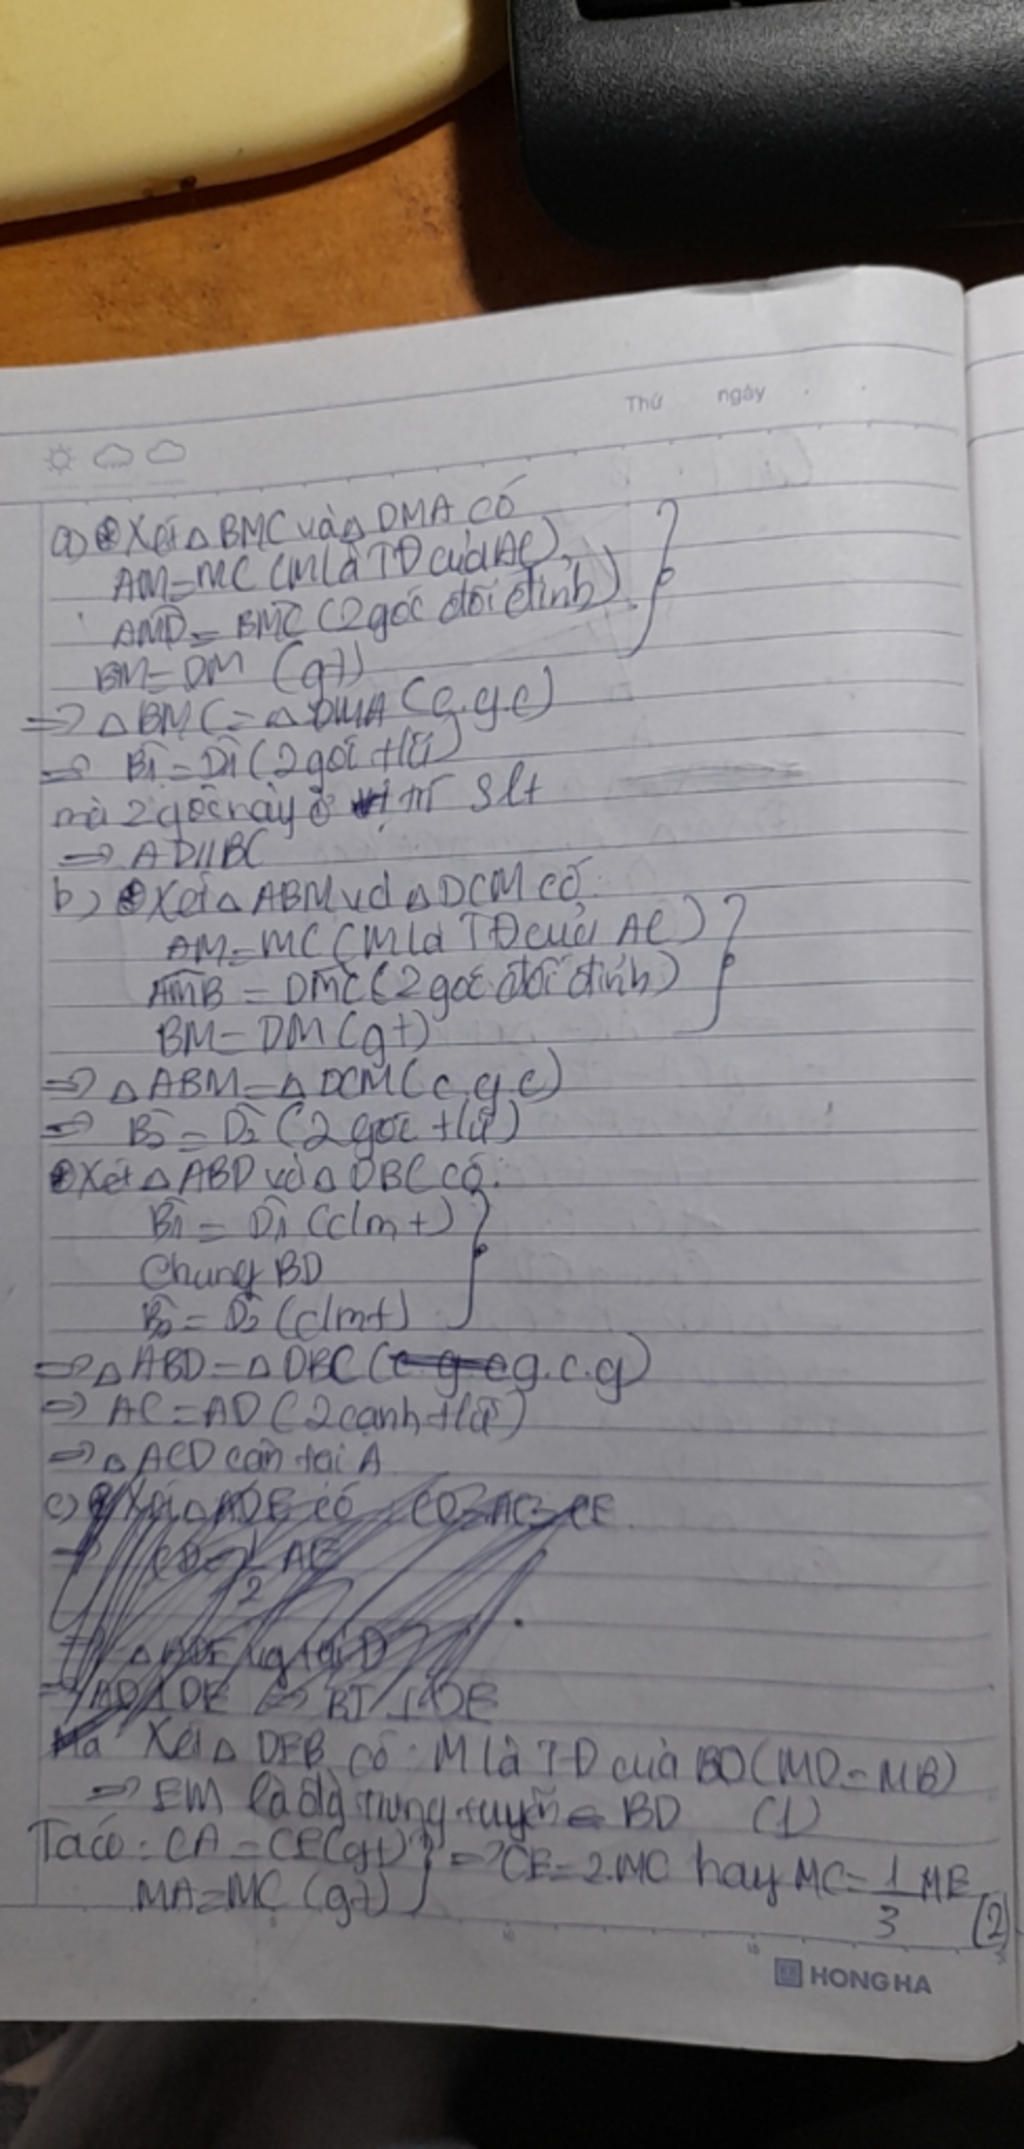 Thứ ngày
a) Xét △BMC và △DMA có
AM=MC (M là TĐ của AC)
AMD = BMC (2 góc đối đỉnh)
BM=DM (gt)
=> △BMC=△DMA (c.g.c)
=> B1 = D1 (2 góc tư)
mà 2 góc này ở vị trí slt
=> AD//BC
b) Xét △ABM và △DCM có:
AM=MC (M là TĐ của AC)
AMB = DMC (2 góc đối đỉnh)
BM=DM (gt)
=> △ABM=△DCM (c.g.c)
=> B2 = D2 (2 góc tư)
Xét △ABD và △DBC có:
B1 = D1 (clmt)
Chung BD
B2 = D2 (clmt)
=> △ABD=△DBC (c-g-c g.c.g)
=> AC=AD (2 cạnh tư)
=> △ACD cân tại A
c) Xét △ADE có CD=AC=CE
=> CD=1/2 AE
=> △ADE tại D
=> AD⊥DE
Xét △DEB có: M là TĐ của BD (MD=MB)
=> EM là đg trung tuyến BD (1)
Ta có: CA=CE (gt) } => CE=2.MC hay MC=1/3 ME (2)
MA=MC (gt)
HONG HA